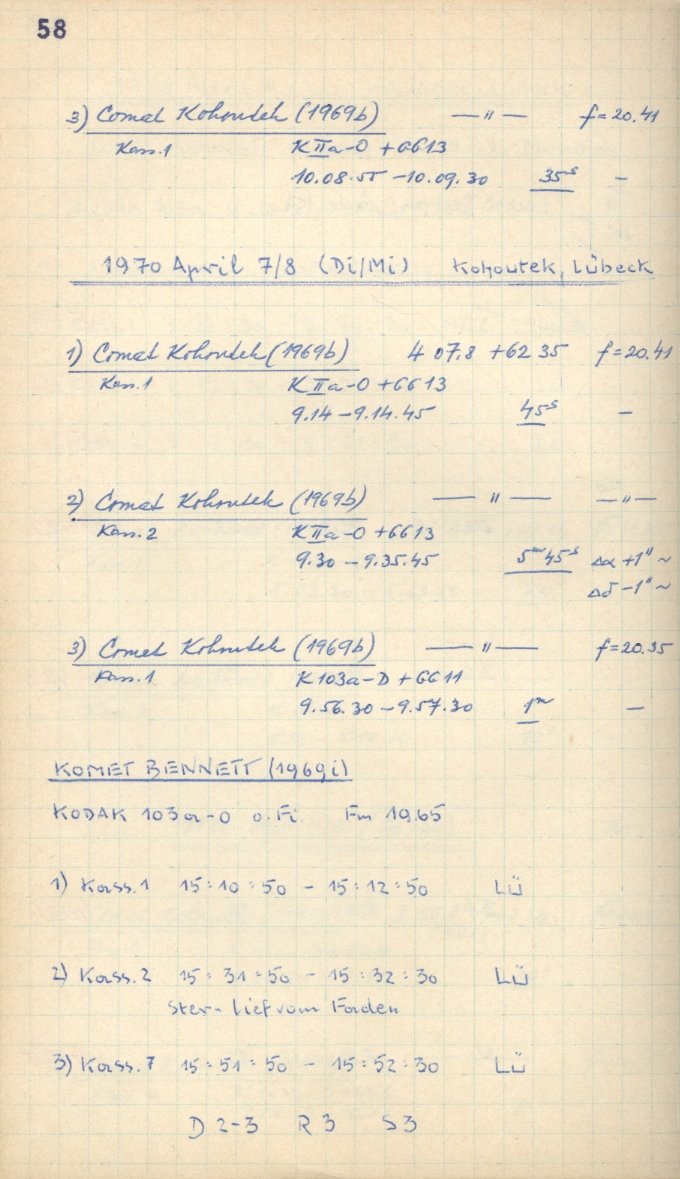 58
3) Comet Kohoutek (1969b) —〃— f=20.41
Kass.1 K IIa-O +GG13
10.08.55 – 10.09.30 35ˢ –
1970 April 7/8 (Di/Mi) Kohoutek, Lübeck
1) Comet Kohoutek (1969b) 4 07.8 +62 35 f=20.41
Kass.1 K IIa-O +GG13
9.14 – 9.14.45 45ˢ –
2) Comet Kohoutek (1969b) —〃— —〃—
Kass.2 K IIa-O +GG13
9.30 – 9.35.45 5ᵐ45ˢ Δα +1" ~
Δδ –1" ~
3) Comet Kohoutek (1969b) —〃— f=20.35
Kass.1 K103a-D + GG11
9.56.30 – 9.57.30 1ᵐ –
KOMET BENNETT (1969i)
KODAK 103a-O o.Fi. Fm 19.65
1) Kass.1 15:10:50 – 15:12:50 LÜ
2) Kass.2 15:31:50 – 15:32:30 LÜ
Stern lief vom Faden
3) Kass.7 15:51:50 – 15:52:30 LÜ
D 2-3 R 3 S 3